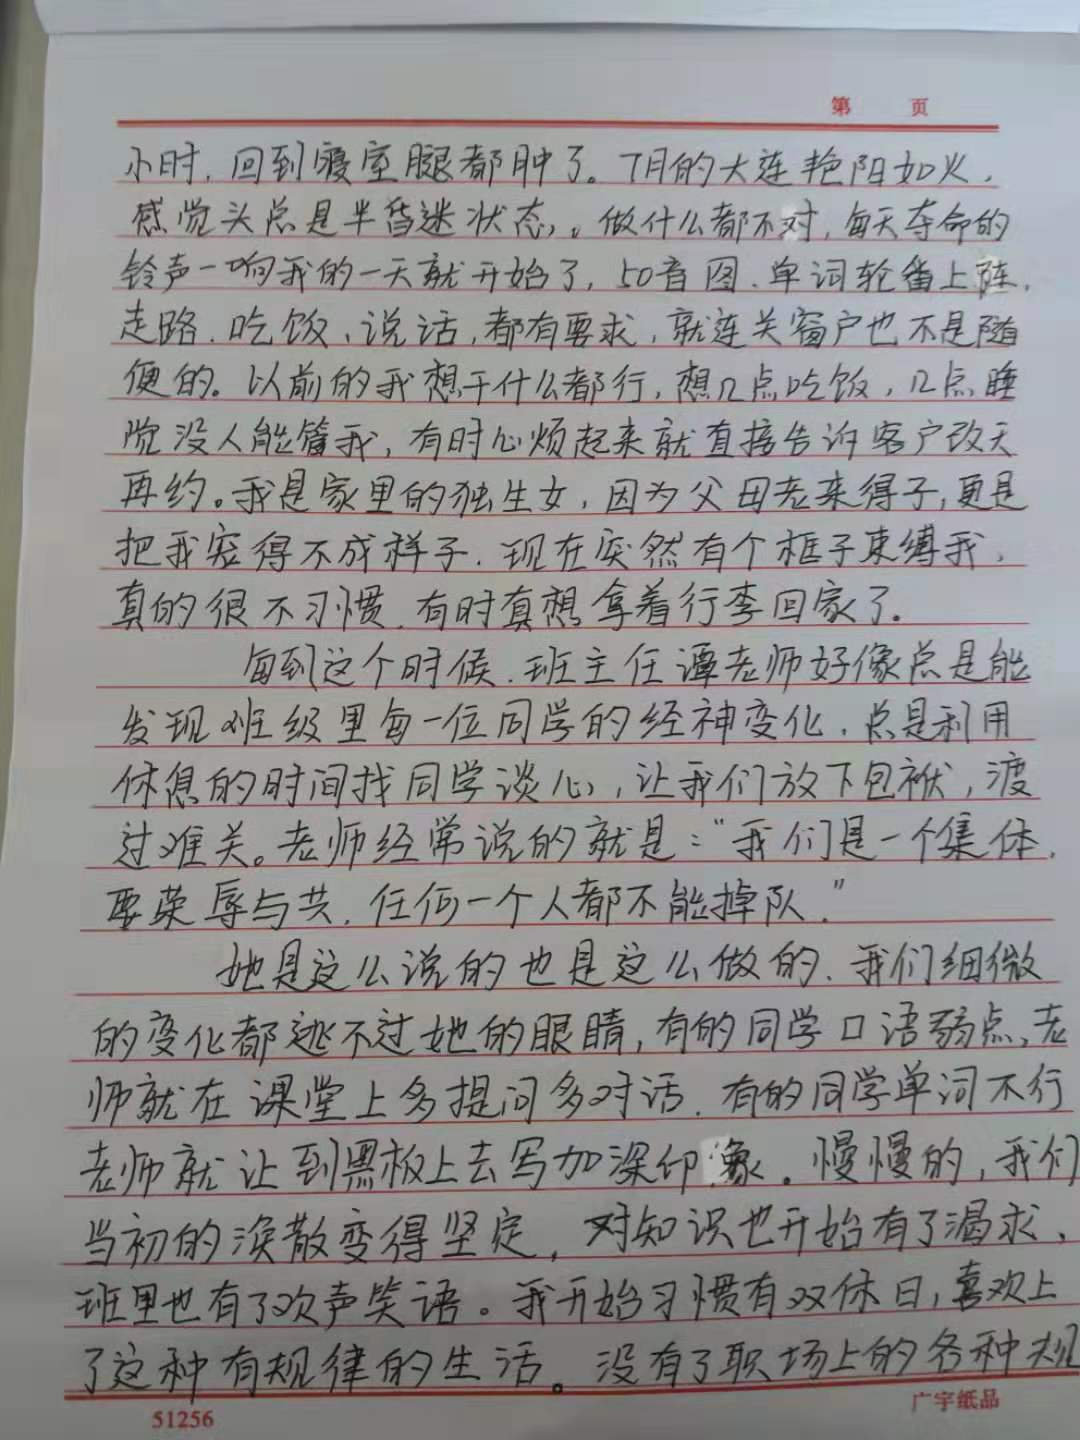 第 页
小时，回到寝室腿都肿了。7月的大连艳阳如火，
感觉头总是半昏迷状态，。做什么都不对，每天夺命的
铃声一响我的一天就开始了，50音图、单词轮番上阵，
走路、吃饭、说话，都有要求，就连关窗户也不是随
便的。以前的我想干什么都行，想几点吃饭，几点睡
觉没人能管我，有时心烦起来就直接告诉客户改天
再约。我是家里的独生女，因为父母老来得子，更是
把我宠得不成样子，现在突然有个框子束缚我，
真的很不习惯，有时真想拿着行李回家了。
每到这个时候，班主任谭老师好像总是能
发现班级里每一位同学的经神变化，总是利用
休息的时间找同学谈心，让我们放下包袱，渡
过难关。老师经常说的就是："我们是一个集体，
要荣辱与共，任何一个人都不能掉队，"
她是这么说的也是这么做的，我们细微
的变化都逃不过她的眼睛，有的同学口语弱点，老
师就在课堂上多提问多对话，有的同学单词不行
老师就让到黑板上去写加深印象。慢慢的，我们
当初的涣散变得坚定，对知识也开始有了渴求，
班里也有了欢声笑语。我开始习惯有双休日，喜欢上
了这种有规律的生活。没有了职场上的各种规
51256
广宇纸品